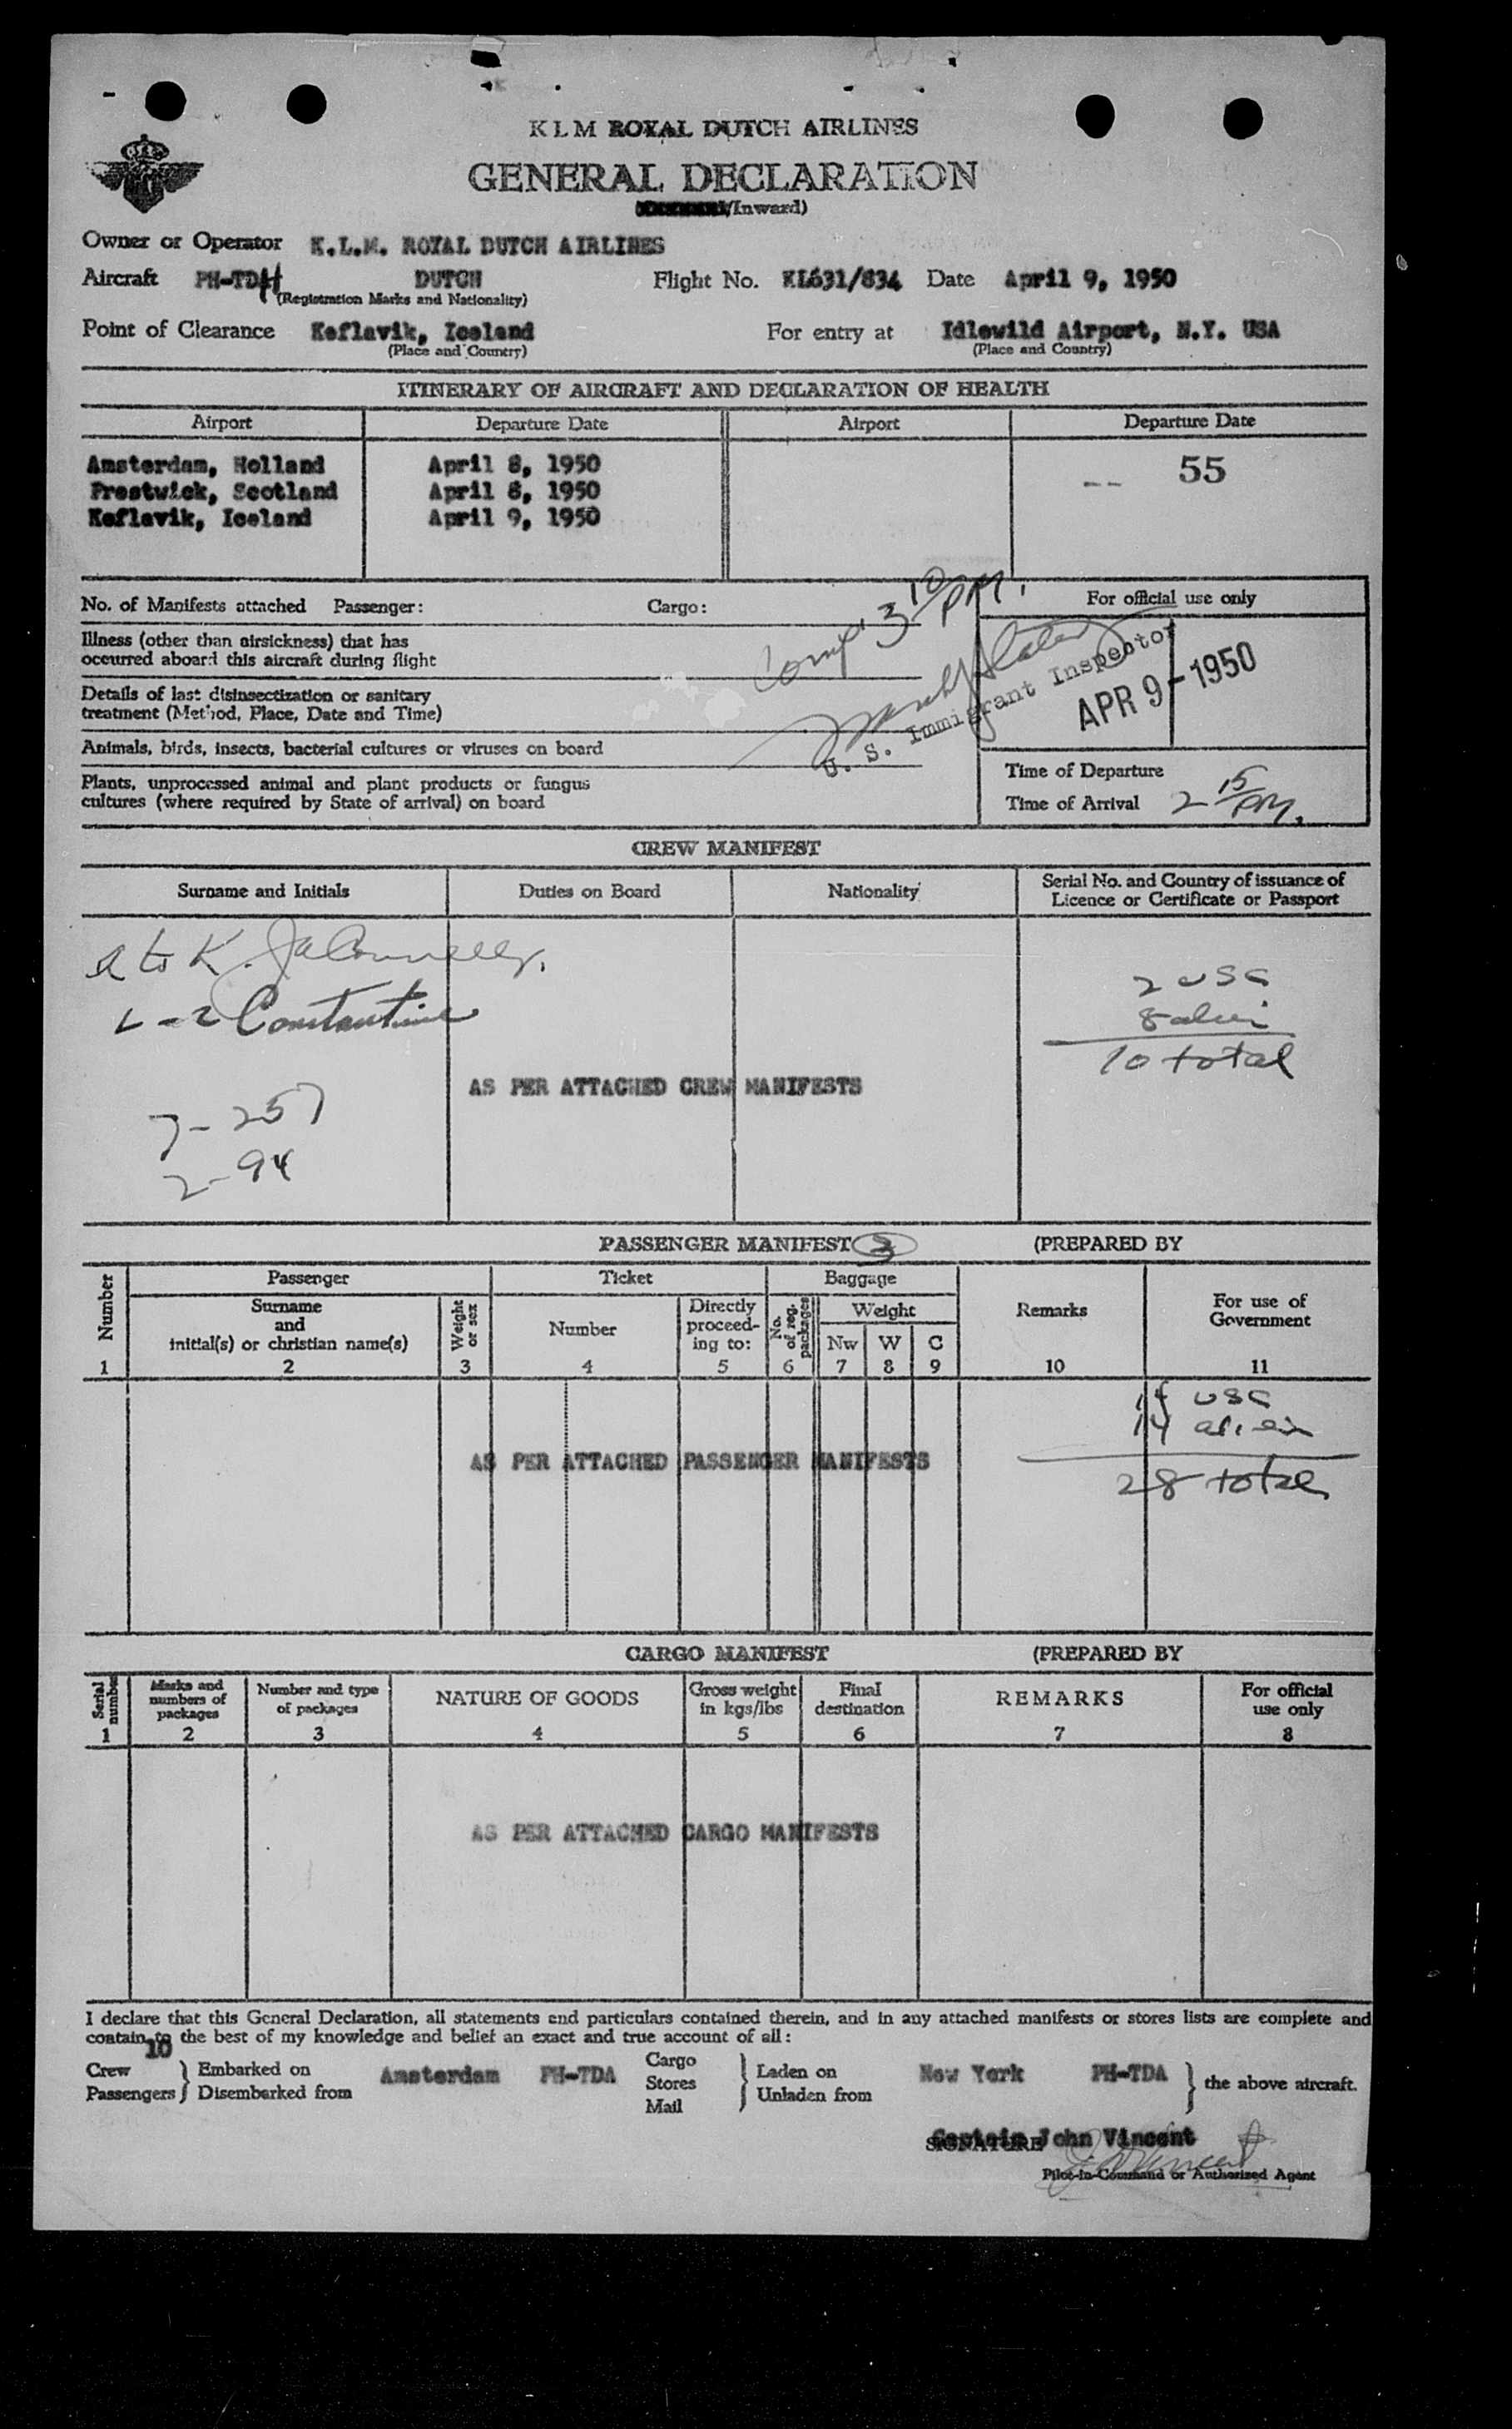 KLM ROYAL DUTCH AIRLINES
GENERAL DECLARATION
/Inward)
Owner or Operator K.L.M. ROYAL DUTCH AIRLINES
Aircraft PH-TDH DUTCH Flight No. KL631/834 Date April 9, 1950
(Registration Marks and Nationality)
Point of Clearance Keflavik, Iceland For entry at Idlewild Airport, N.Y. USA
(Place and Country) (Place and Country)
ITINERARY OF AIRCRAFT AND DECLARATION OF HEALTH
Airport Departure Date Airport Departure Date
Amsterdam, Holland April 8, 1950 -- 55
Prestwick, Scotland April 8, 1950
Keflavik, Iceland April 9, 1950
No. of Manifests attached Passenger: Cargo: For official use only
Comp 3 10 PM.
Illness (other than airsickness) that has
occurred aboard this aircraft during flight
U. S. Immigrant Inspector
APR 9-1950
Details of last disinsectization or sanitary
treatment (Method, Place, Date and Time)
Animals, birds, insects, bacterial cultures or viruses on board
Plants, unprocessed animal and plant products or fungus
cultures (where required by State of arrival) on board
Time of Departure
Time of Arrival 2 15 PM.
CREW MANIFEST
Surname and Initials Duties on Board Nationality Serial No. and Country of issuance of
Licence or Certificate or Passport
to K.
Constantine
2 USC
8 alien
10 total
AS PER ATTACHED CREW MANIFESTS
7-257
2-94
PASSENGER MANIFEST 3 (PREPARED BY
Number Passenger Ticket Baggage Remarks For use of
Government
Surname
and
initial(s) or christian name(s)
Weight
or sex
Number
Directly
proceed-
ing to:
No.
of reg.
packages
Weight
Nw W C
1 2 3 4 5 6 7 8 9 10 11
14 USC
14 alien
28 total
AS PER ATTACHED PASSENGER MANIFESTS
CARGO MANIFEST (PREPARED BY
Serial
number
Marks and
numbers of
packages
Number and type
of packages
NATURE OF GOODS
Gross weight
in kgs/lbs
Final
destination
REMARKS
For official
use only
1 2 3 4 5 6 7 8
AS PER ATTACHED CARGO MANIFESTS
I declare that this General Declaration, all statements and particulars contained therein, and in any attached manifests or stores lists are complete and
contain to the best of my knowledge and belief an exact and true account of all:
10
Crew } Embarked on Amsterdam PH-TDA Cargo } Laden on New York PH-TDA } the above aircraft.
Passengers } Disembarked from Stores } Unladen from
Mail
SIGNATURE Captain John Vincent
Pilot-in-Command or Authorized Agent